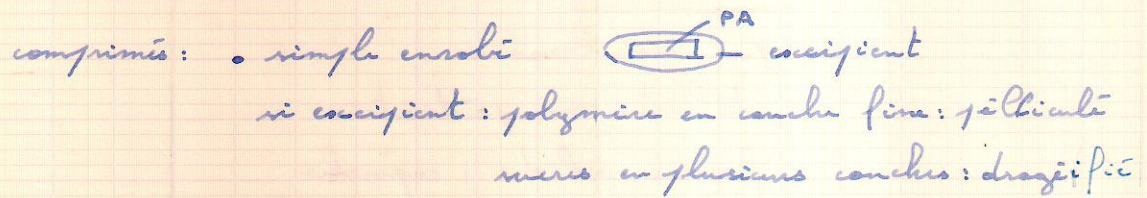 PA
comprimés : • simple enrobé excipient
si excipient : polymère en couche fine : pélliculé
sucres en plusieurs couches : dragéifié